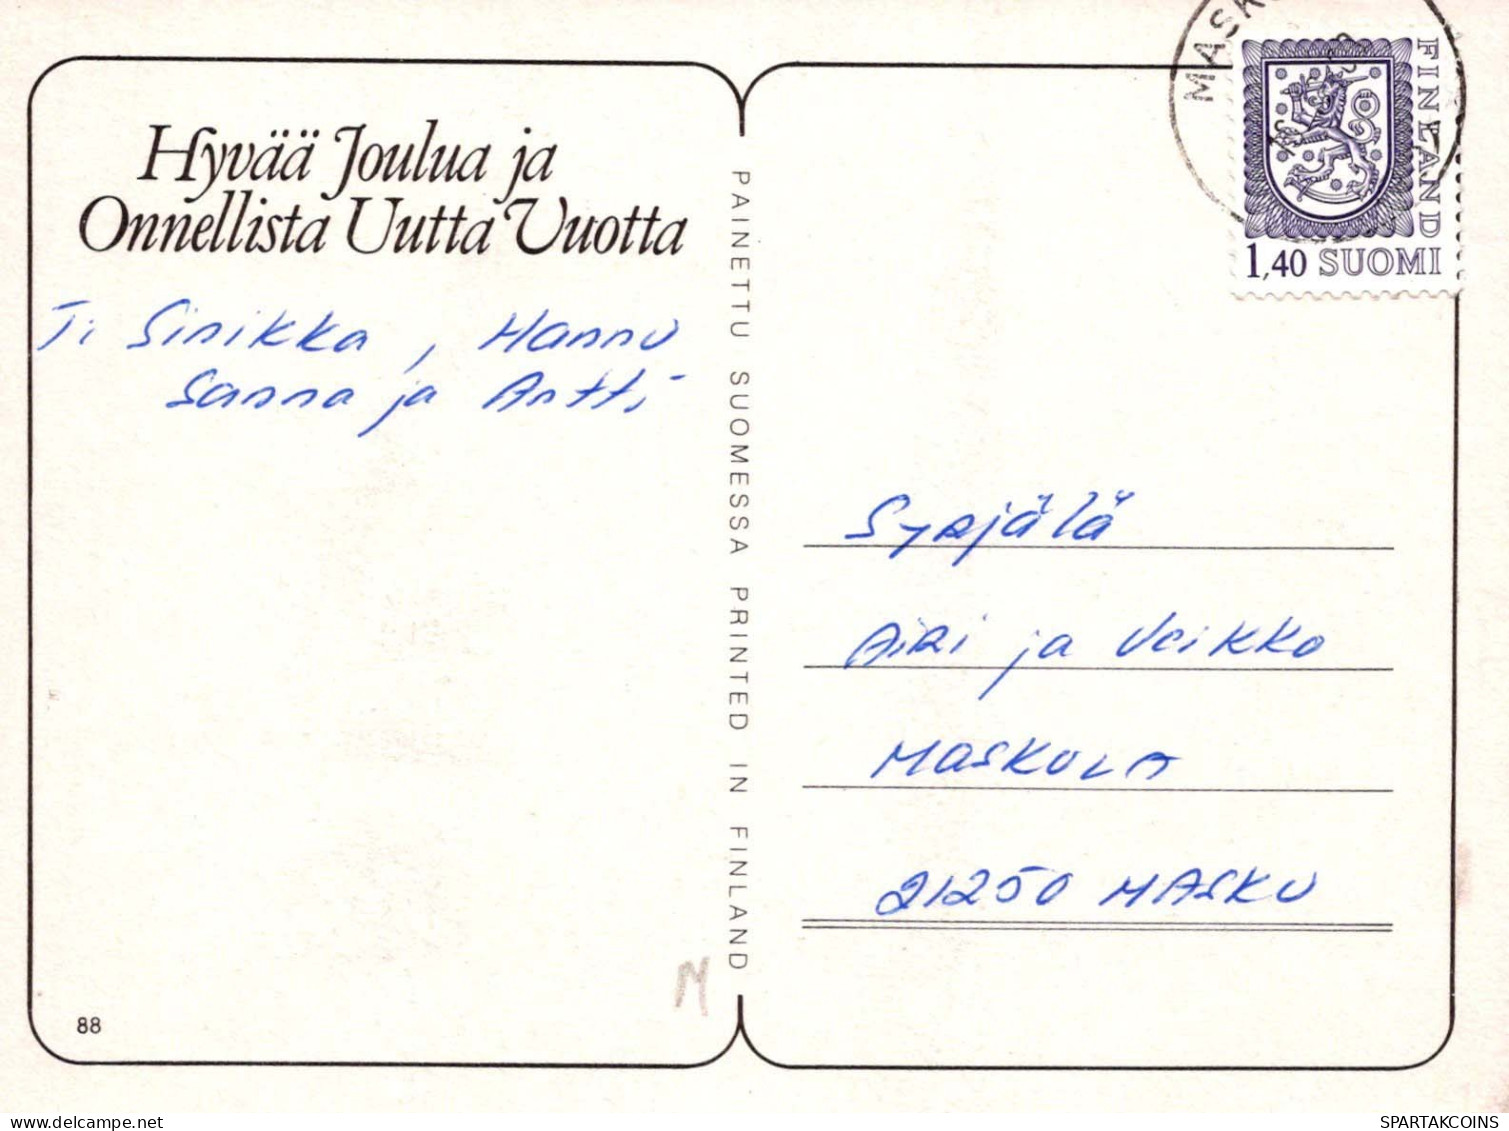 Hyvää Joulua ja
Onnellista Uutta Vuotta
Ti Sinikka, Hannu
Sanna ja Antti
88
PAINETTU SUOMESSA PRINTED IN FINLAND
M
MASKU
FINLAND
1,40 SUOMI
Syrjälä
Airi ja Veikko
MASKULA
21250 MASKU
SPARTAKCOINS